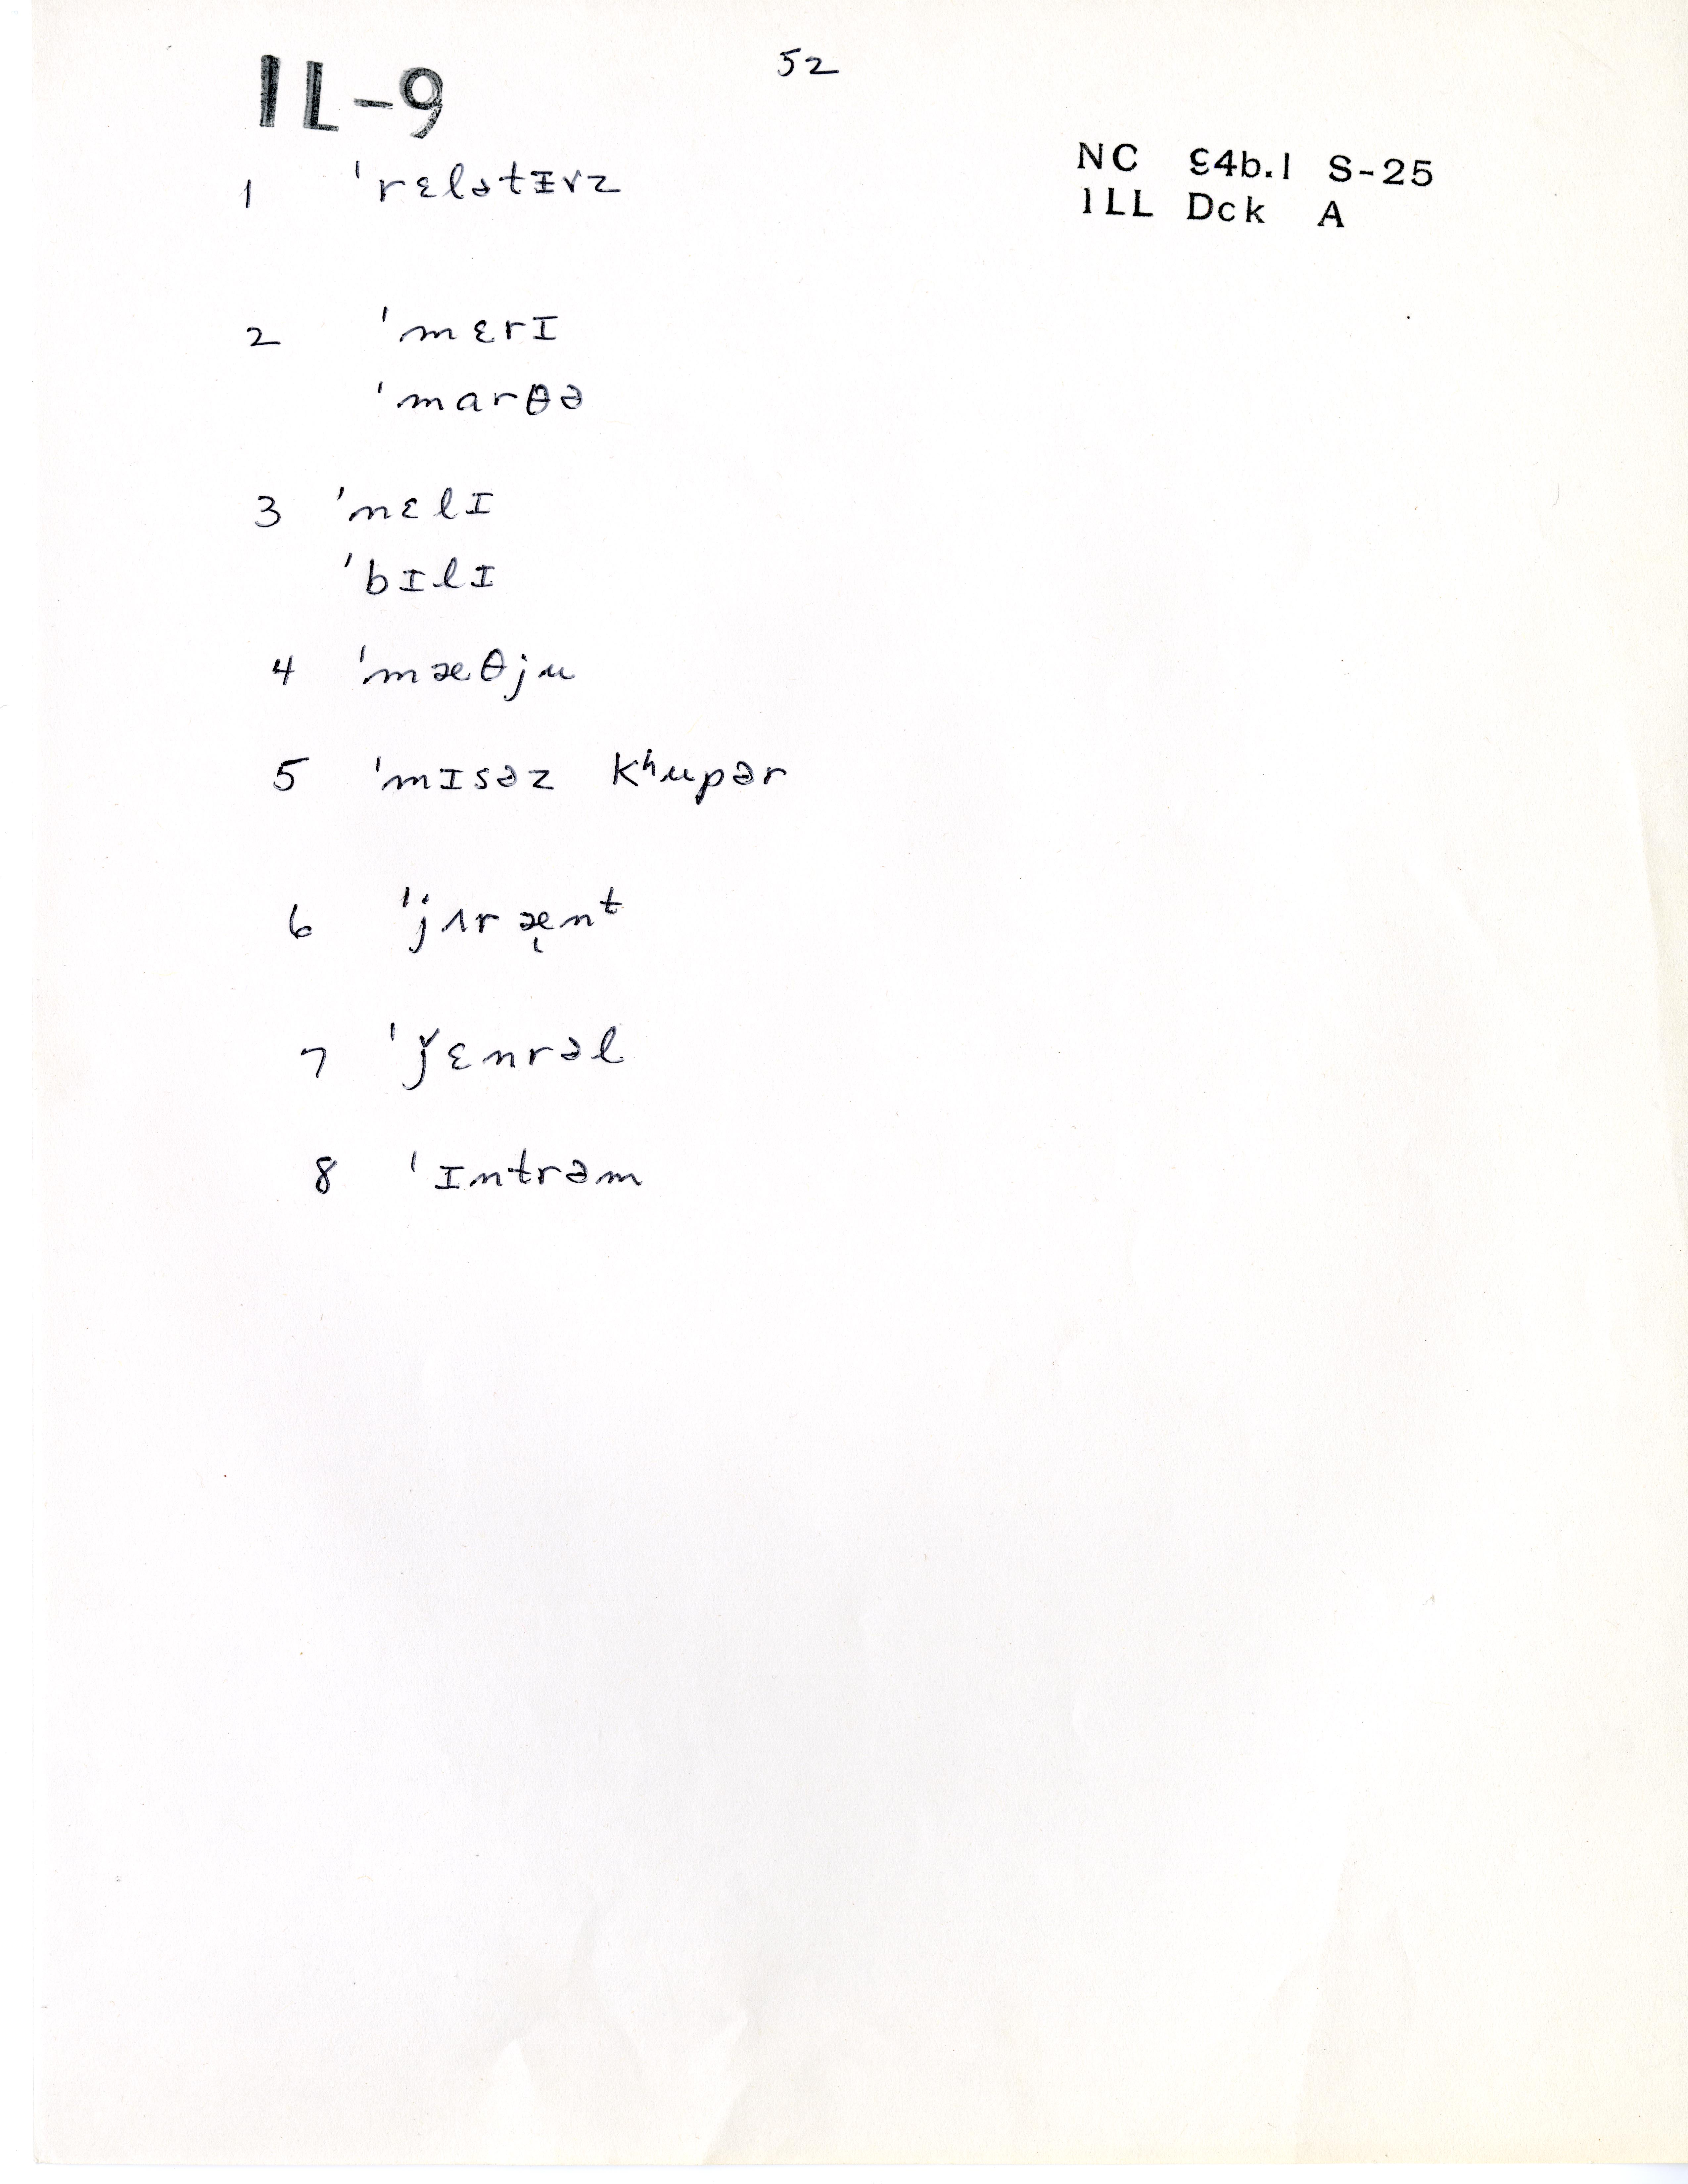 IL-9
52
NC 54b.1 S-25
ILL Dck A
1 'rɛlətɪvz
2 'mɛrɪ
'marθə
3 'nɛlɪ
'bɪlɪ
4 'mæθju
5 'mɪsəz kʰupər
6 'jʌræ̨nᵗ
7 'ǰɛnrəl
8 'ɪntrəm